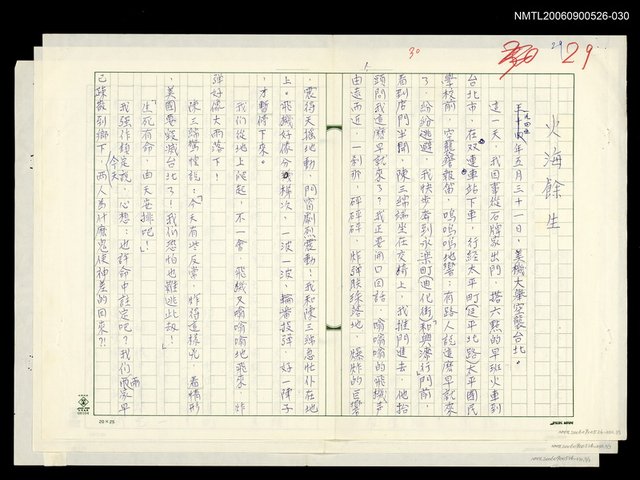 NMTL20060900526-030
29
30
火海餘生
一九四五年五月三十一日，美機大舉空襲台北。
這一天，我因事從石牌家出門，搭六點的早班火車到
台北市，在双連車站下車，行經太平町（延平北路）太平國民
學校前，空襲警報笛，嗚嗚嗚地響；有路人說這麼早就來
了，紛紛逃避，我快步奔到永樂町（迪化街）和興澤行門前，
看到店門半開，陳三端坐在交椅上，我推門進去，他抬
頭問我這麼早就來了？我正要開口回話，嗡嗡嗡的飛機聲
由遠而近，一刹那，砰砰砰，炸彈殊殊落地，爆炸的巨響
，震得天搖地動，門窗劇烈震動！我和陳三端急忙仆在地
上。飛機好像分梯次，一波一波，輪番投彈，好一陣子
，才暫停下來。
我們從地上爬起，不一會，飛機又嗡嗡嗡地飛來，炸
彈好像大雨落下！
陳三端驚愕說：「今天有些反常，炸得這樣兇，看情形
，美國要毀滅台北了！我們恐怕也難逃此劫！」
「生死有命，由天安排吧！」
我強作鎮定說，心想：也許命中註定吧？我們兩家早
已疎散到鄉下，今天兩人為什麼鬼使神差的回來？！
20×25